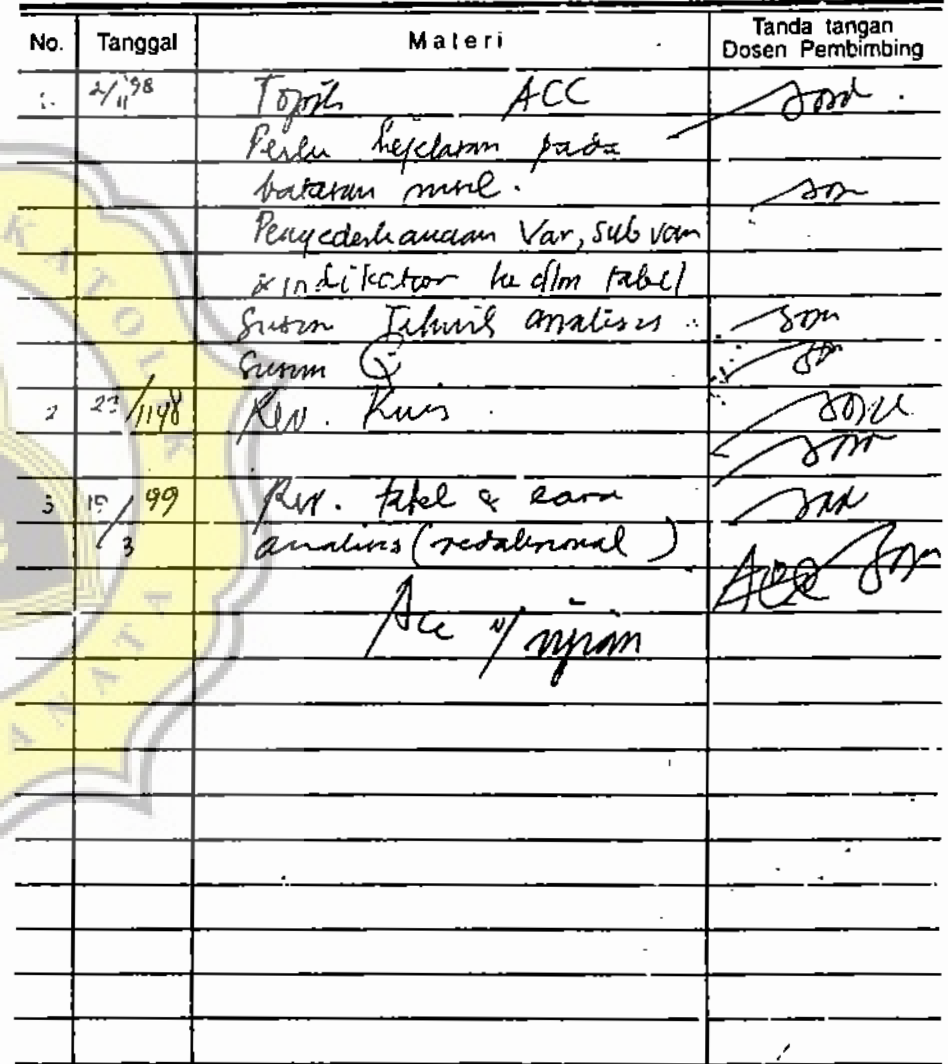 No. Tanggal Materi Tanda tangan
Dosen Pembimbing
1. 2/11 '98 Topik ACC
Perlu kejelasan pada
batasan
Penyederhanaan Var, sub var
& indikator ke dlm tabel
Susun Teknik analisis
Susun Q
2 23/11 98 Rev. Kues
3 15/3 99 Rev. tabel & cara
analisis (redaksional)
Acc
Acc u/ ujian
KATOLIK